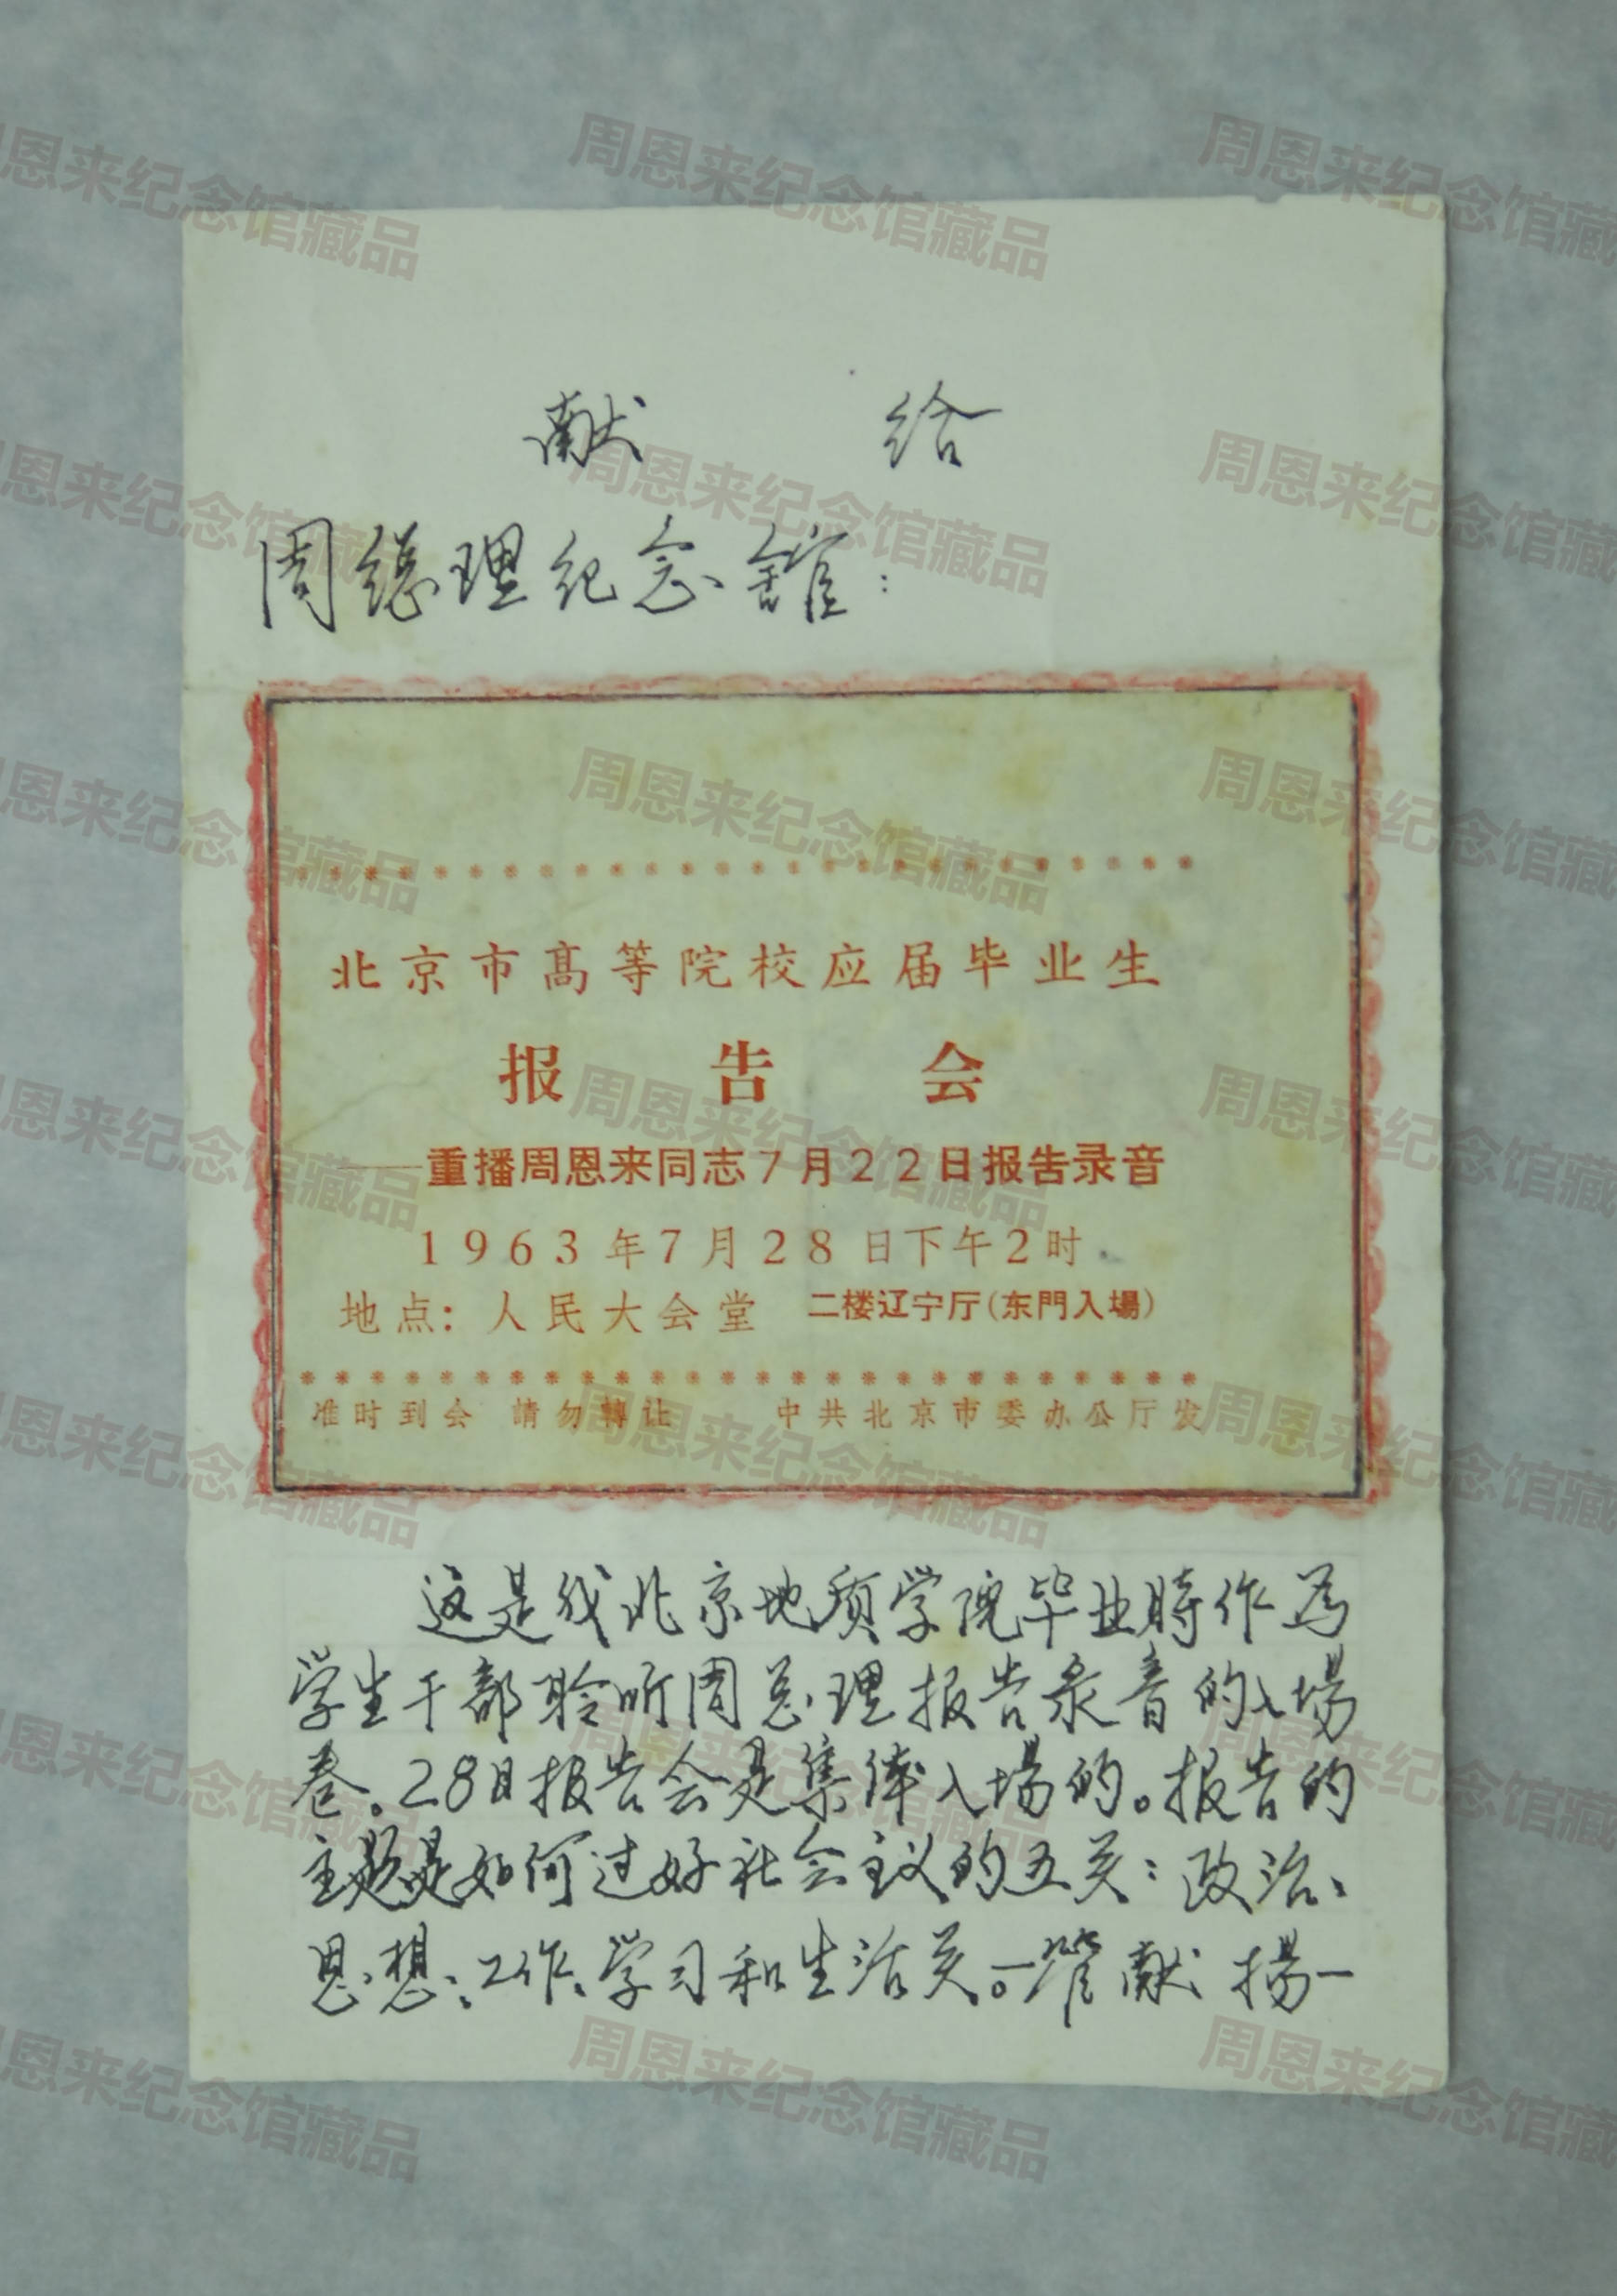 献 给
周總理纪念舘：
北京市高等院校应届毕业生
报 告 会
——重播周恩来同志7月22日报告录音
1963年7月28日下午2时
地点：人民大会堂 二楼辽宁厅(东門入場)
准时到会 請勿轉让 中共北京市委办公厅发
这是我北京地质学院毕业時作为
学生干部聆听周总理报告录音的入場
卷。28日报告会是集体入場的。报告的
主题是如何过好社会主义的五关：政治、
思想、工作、学习和生活关。 献 揚一
周恩来纪念馆藏品